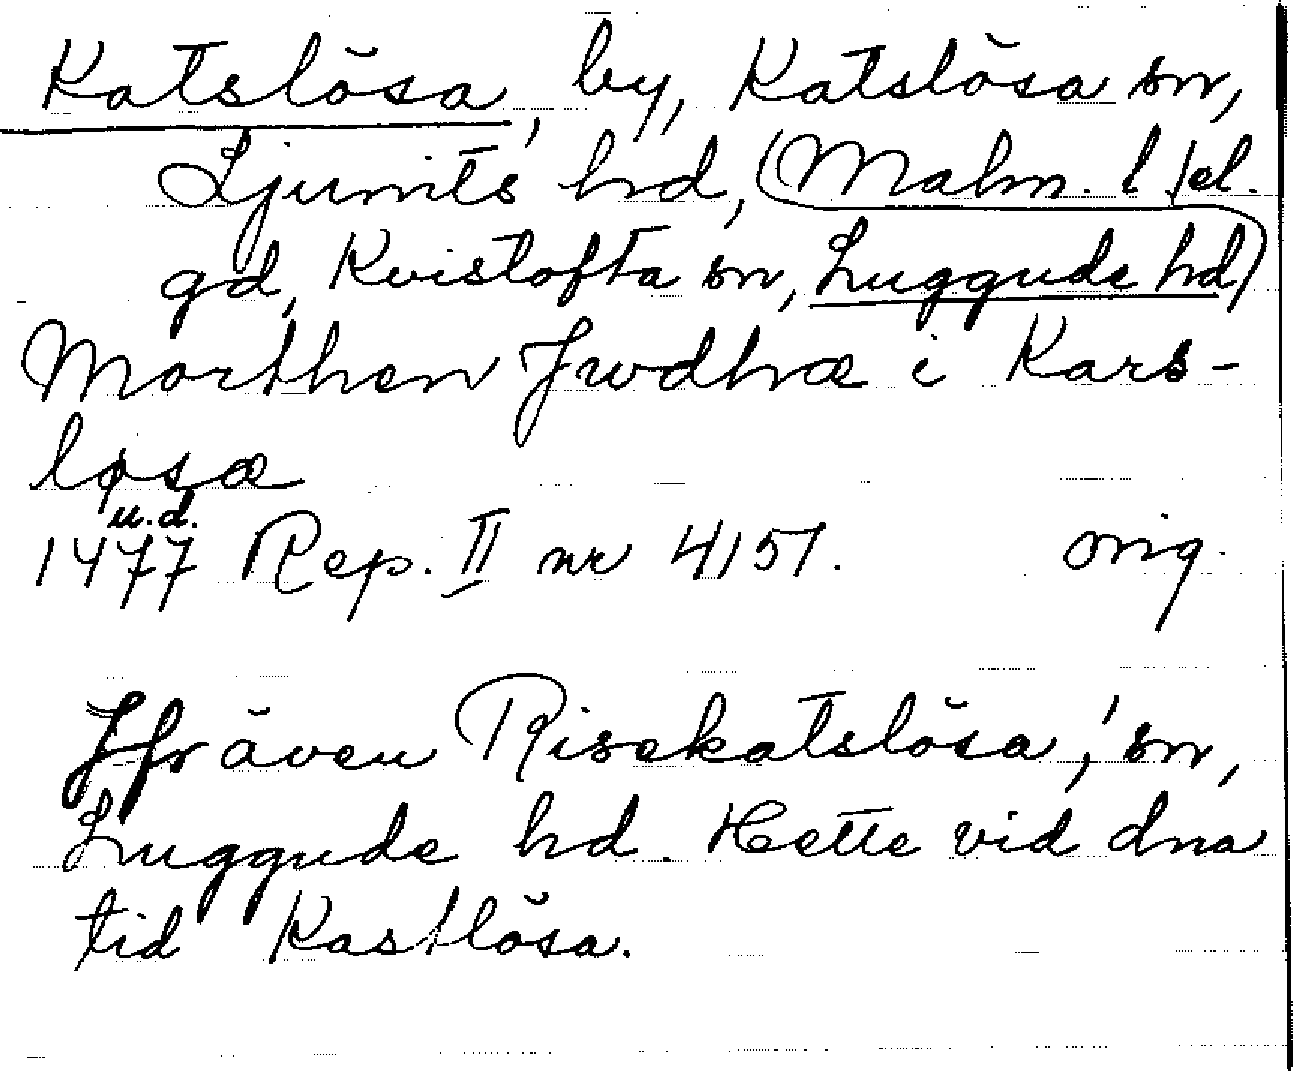 Katslösa, by, Katslösa sn,
Ljunits hd, (Malm. l) el.
gd, Kvistofta sn, Luggude hd)
Morthen Jwdhæ i Kars-
løsæ
u.d.
1477 Rep. II nr 4151. orig.
Jfr även Risekatslösa, sn,
Luggude hd. Hette vid dna
tid Kastlösa.